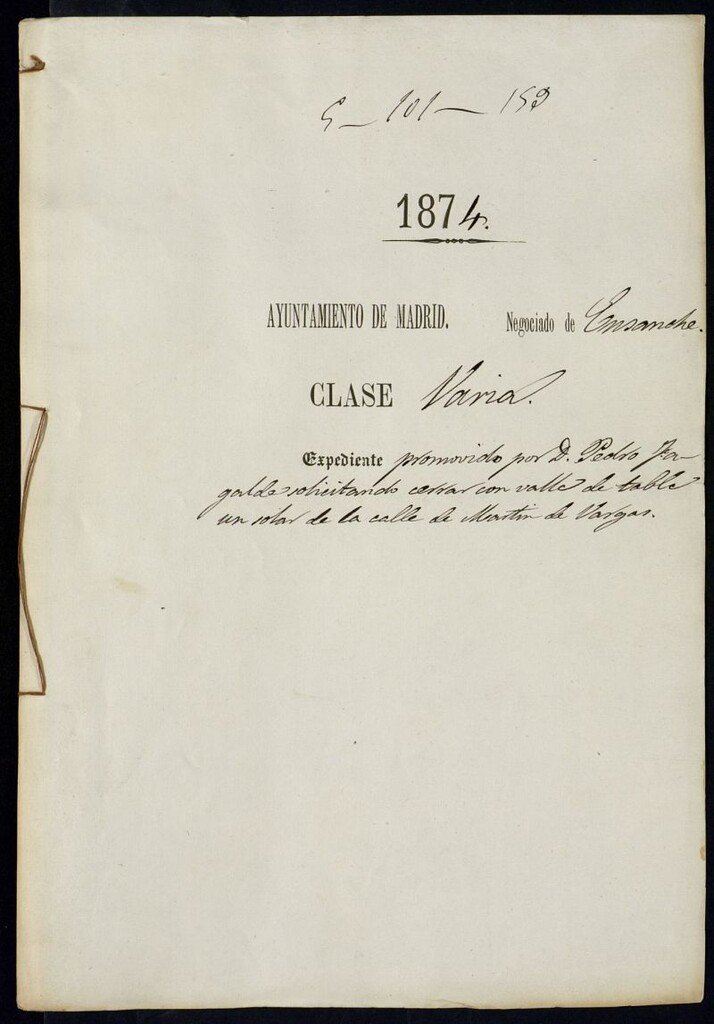 5 - 101 - 153
1874.
AYUNTAMIENTO DE MADRID. Negociado de Ensanche.
CLASE Varia.
Expediente promovido por D. Pedro
galde solicitando cerrar con valla de tabla
un solar de la calle de Martin de Vargas.